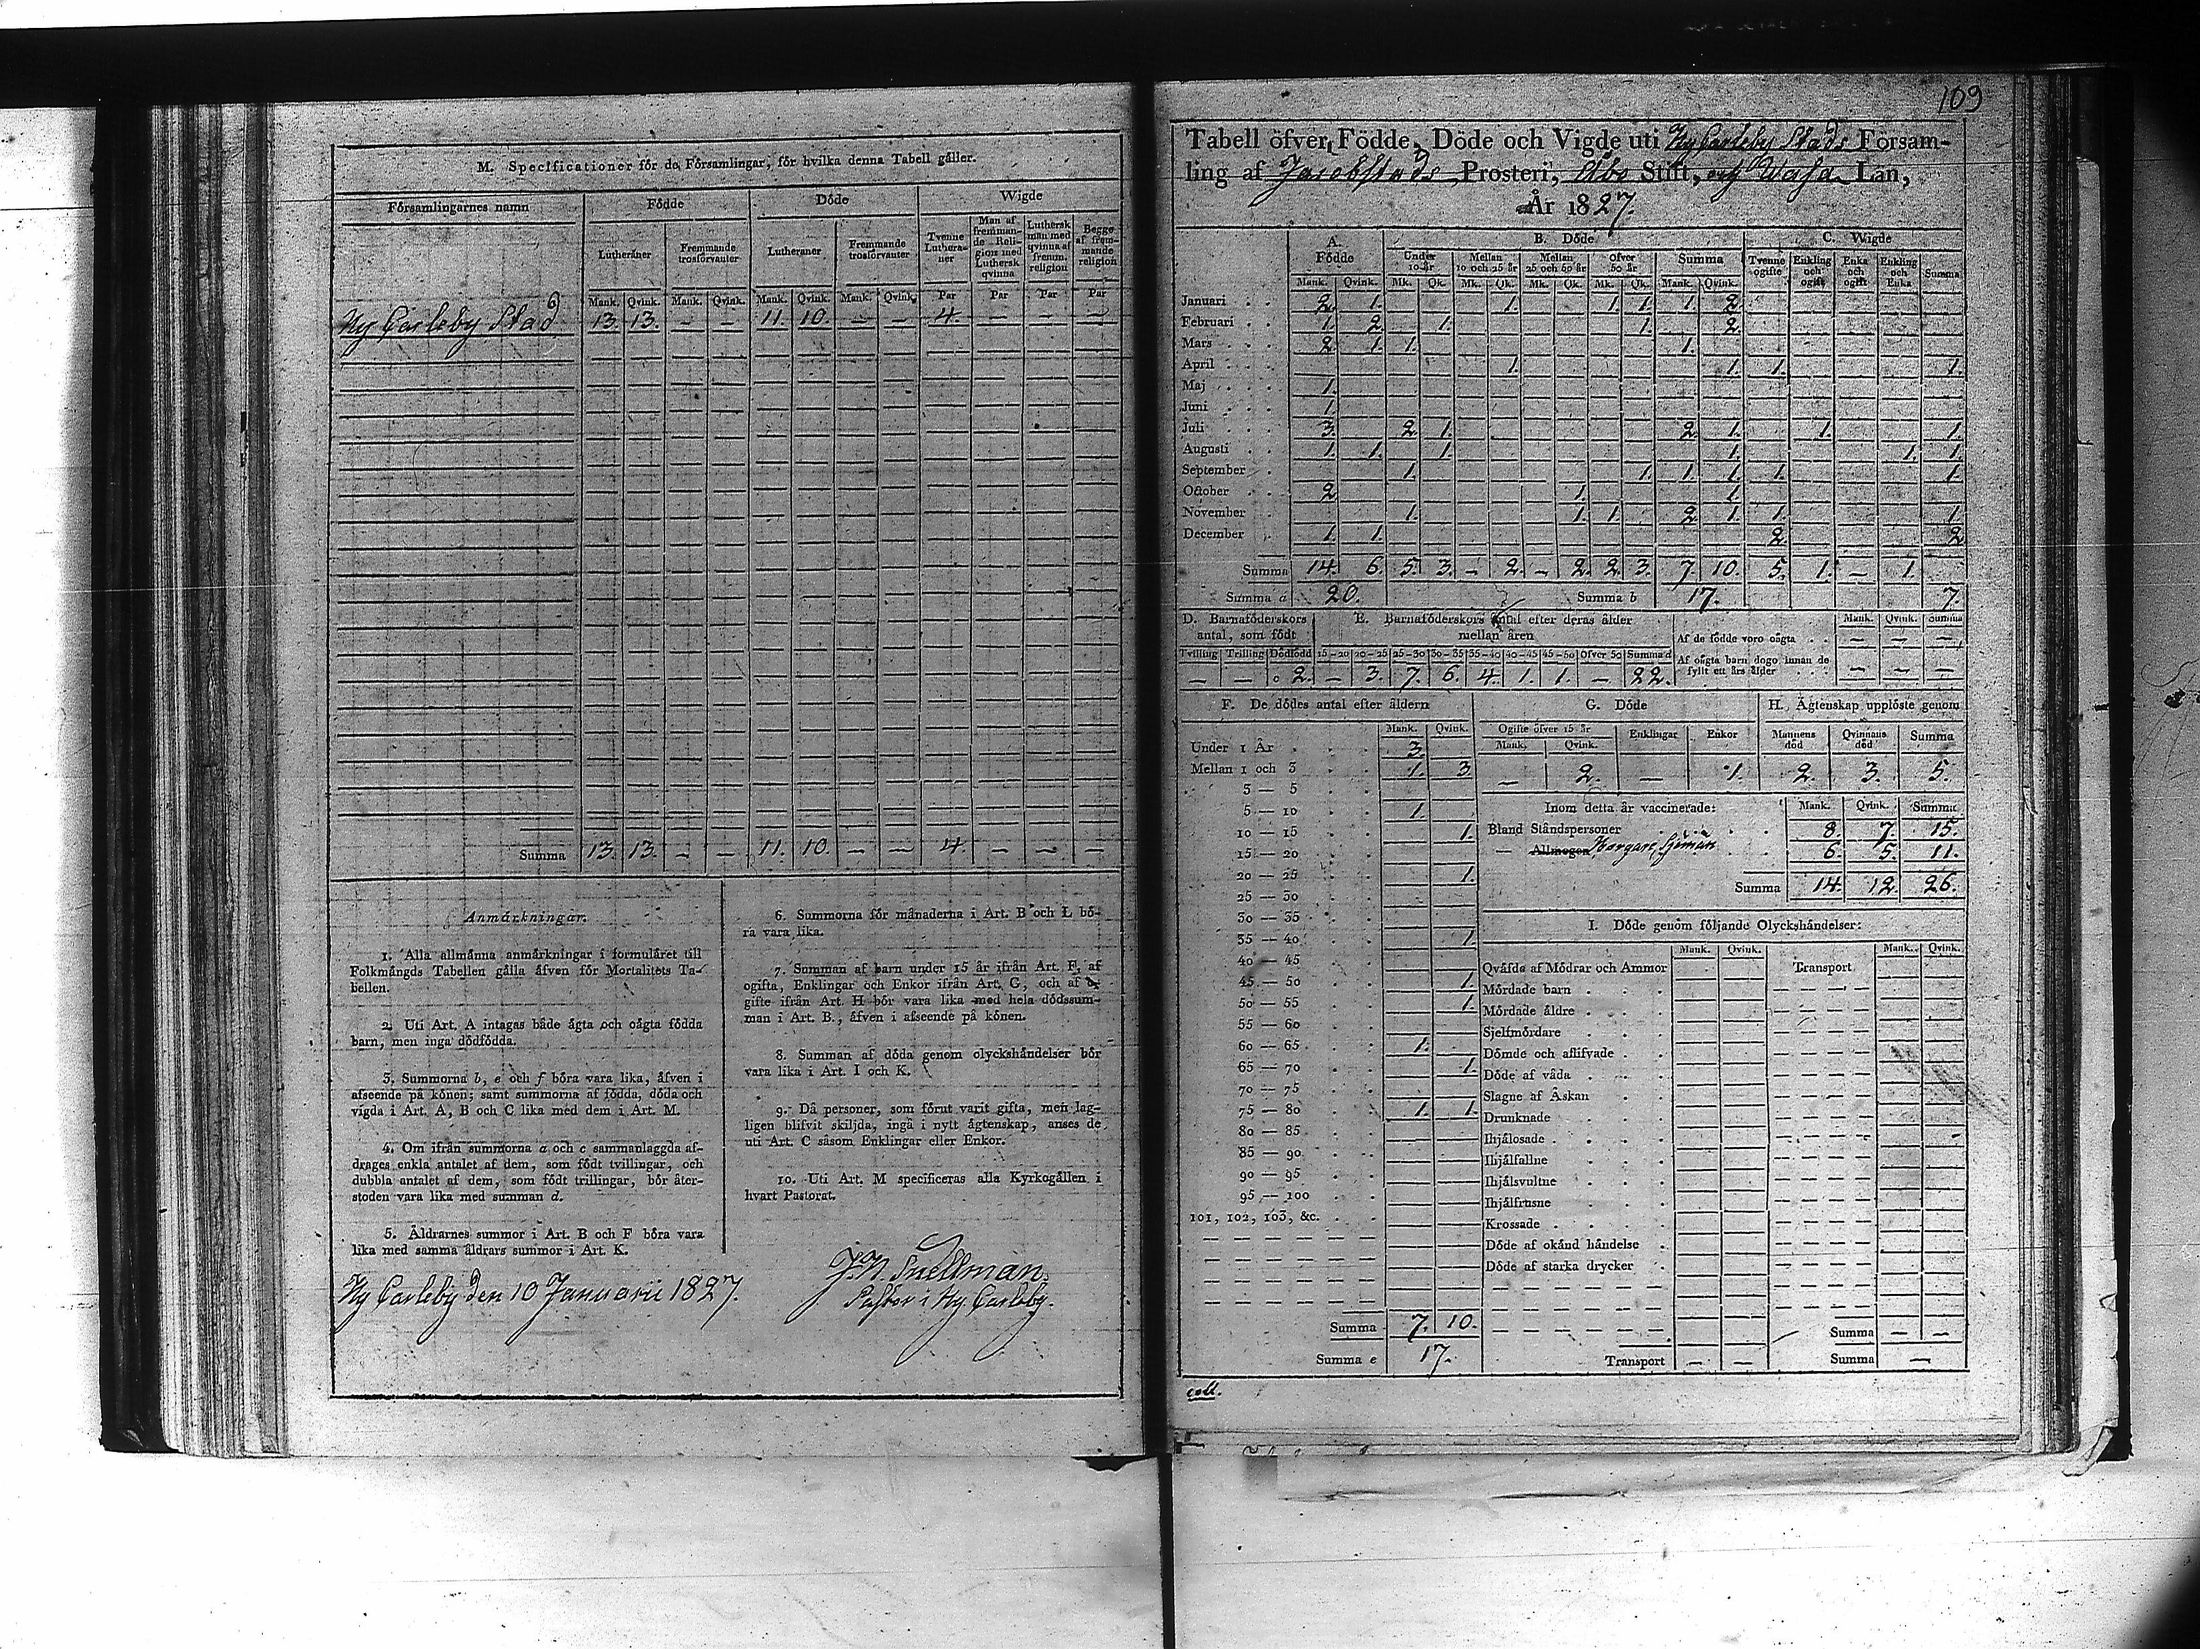 M. Specificationer för de Församlingar, för hvilka denna Tabell gäller.
Församlingarnes namn
Födde
Döde
Wigde
Lutheraner
Fremmande trosförvanter
Lutheraner
Fremmande trosförvanter
Tvenne Lutheraner
Man af fremmande Religion med Luthersk qvinna
Luthersk man med qvinna af fremm. religion
Begge af fremmande religion
Mank. Qvink. Mank. Qvink. Mank. Qvink. Mank. Qvink. Par Par Par Par
Ny Carleby Stad 13. 13. — — 11. 10. — — 4. — — —
Summa 13. 13. — — 11. 10. — — 4. — — —
Anmärkningar.
1. Alla allmänna anmärkningar i formuläret till
Folkmängds Tabellen gälla äfven för Mortalitets Ta-
bellen.
2. Uti Art. A intagas både ägta och oägta födda
barn, men inga dödfödda.
3. Summorna b, e och f böra vara lika, äfven i
afseende på könen; samt summorna af födda, döda och
vigda i Art. A, B och C lika med dem i Art. M.
4. Om ifrån summorna a och c sammanlaggda af-
drages enkla antalet af dem, som födt tvillingar, och
dubbla antalet af dem, som födt trillingar, bör åter-
stoden vara lika med summan d.
5. Åldrarnes summor i Art. B och F böra vara
lika med samma åldrars summor i Art. K.
6. Summorna för månaderna i Art. B och L bö-
ra vara lika.
7. Summan af barn under 15 år ifrån Art. F, af
ogifta, Enklingar och Enkor ifrån Art. G, och af
gifte ifrån Art. H bör vara lika med hela dödssum-
man i Art. B., äfven i afseende på könen.
8. Summan af döda genom olyckshändelser bör
vara lika i Art. I och K.
9. Då personer, som förut varit gifta, men lag-
ligen blifvit skiljda, ingå i nytt ägtenskap, anses de
uti Art. C såsom Enklingar eller Enkor.
10. Uti Art. M specificeras alla Kyrkogällen i
hvart Pastorat.
Ny Carleby den 10 Januarii 1827.
J. N. Snellman.
Pastor i Ny Carleby.
109
Tabell öfver Födde, Döde och Vigde uti Ny Carleby Stads Försam-
ling af Jacobstads Prosteri, Åbo Stift, och Wasa Län,
År 1827.
A. Födde
B. Döde
C. Wigde
Under 10 år
Mellan 10 och 25 år
Mellan 25 och 50 år
Öfver 50 år
Summa
Tvenne ogifte
Enkling och ogift
Enka och ogift
Enkling och Enka
Summa
Mank. Qvink. Mk. Qk. Mk. Qk. Mk. Qk. Mk. Qk. Mank. Qvink.
Januari 2. 1. 1. 1. 1. 1. 2.
Februari 1. 2. 1. 1. 2.
Mars 2. 1. 1. 1.
April 1. 1. 1. 1.
Maj 1.
Juni 1.
Juli 3. 2. 1. 2. 1. 1. 1.
Augusti 1. 1. 1. 1. 1. 1.
September 1. 1. 1. 1. 1. 1.
October 2. 1. 1.
November 1. 1. 1. 2. 1. 1. 1.
December 1. 1. 2. 2
Summa 14. 6. 5. 3. — 2. — 2. 2. 3. 7. 10. 5. 1. — 1.
Summa a 20. Summa b 17. 7.
D. Barnaföderskors antal, som födt
E. Barnaföderskors antal efter deras ålder mellan åren
Mank. Qvink. Summa
Af de födde voro oägta — — —
Af oägta barn dogo innan de fyllt ett års ålder — — —
Tvilling Trilling Dödfödd 15—20 20—25 25—30 30—35 35—40 40—45 45—50 Öfver 50 Summa d
— — 2. — 3. 7. 6. 4. 1. 1. — 22.
F. De dödes antal efter åldern
Mank. Qvink.
Under 1 År 3.
Mellan 1 och 3 1. 3.
3 — 5
5 — 10 1.
10 — 15 1.
15 — 20
20 — 25 1.
25 — 30
30 — 35
35 — 40 1.
40 — 45
45 — 50 1.
50 — 55 1.
55 — 60
60 — 65 1.
65 — 70 1.
70 — 75
75 — 80 1. 1.
80 — 85
85 — 90
90 — 95
95 — 100
101, 102, 103, &c.
Summa 7. 10.
Summa e 17.
G. Döde
Ogifte öfver 15 år
Enklingar
Enkor
Mank. Qvink.
— 2. — 1.
H. Ägtenskap upplöste genom
Mannens död
Qvinnans död
Summa
2. 3. 5.
Inom detta år vaccinerade: Mank. Qvink. Summa
Bland Ståndspersoner 8. 7. 15.
— Allmogen Borgare, Sjömän 6. 5. 11.
Summa 14. 12. 26.
I. Döde genom följande Olyckshändelser:
Mank. Qvink. Mank. Qvink.
Qväfde af Mödrar och Ammor
Transport
Mördade barn
Mördade äldre
Sjelfmördare
Dömde och aflifvade
Döde af våda
Slagne af Åskan
Drunknade
Ihjälosade
Ihjälfallne
Ihjälsvultne
Ihjälfrusne
Krossade
Döde af okänd händelse
Döde af starka drycker
Summa — —
Transport — — Summa —
coll.